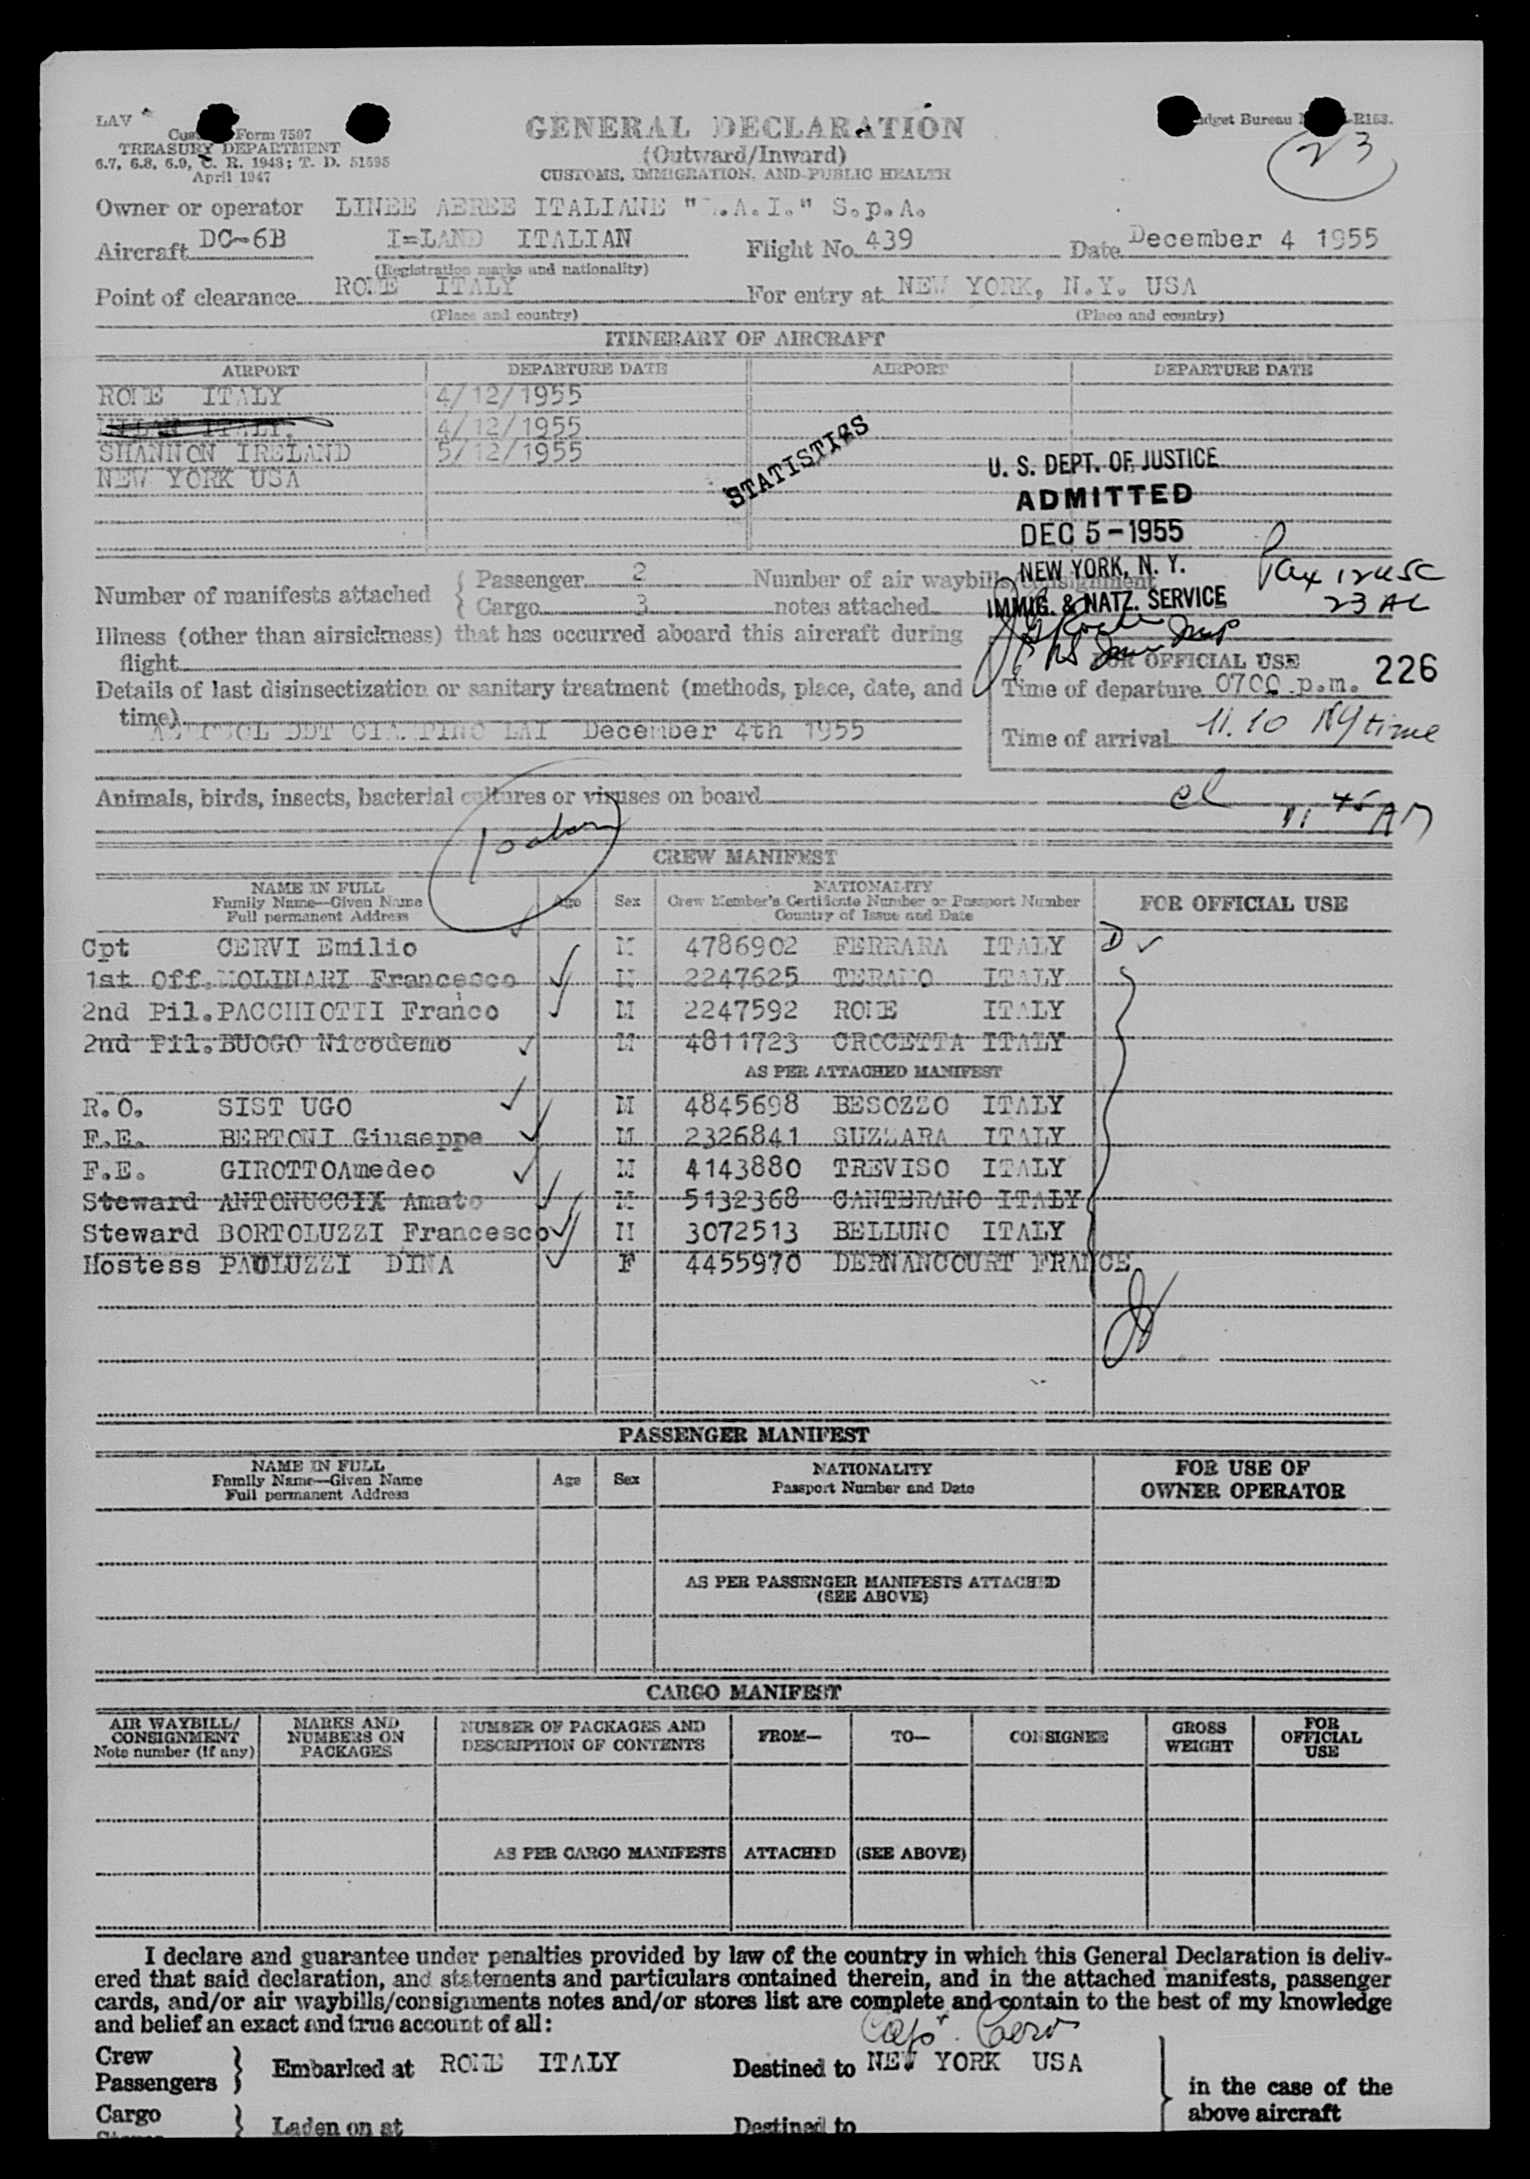 LAV
Form 7507
TREASURY DEPARTMENT
6.7, 6.8, 6.9, C. R. 1943; T. D. 51595
April 1947
GENERAL DECLARATION
(Outward/Inward)
CUSTOMS, IMMIGRATION, AND PUBLIC HEALTH
Budget Bureau R153.
23
Owner or operator LINEE AEREE ITALIANE "L.A.I." S.p.A.
Aircraft DC-6B I=LAND ITALIAN Flight No. 439 Date December 4 1955
(Registration marks and nationality)
Point of clearance ROME ITALY For entry at NEW YORK, N.Y. USA
(Place and country) (Place and country)
ITINERARY OF AIRCRAFT
AIRPORT DEPARTURE DATE AIRPORT DEPARTURE DATE
ROME ITALY 4/12/1955
MILAN ITALY, 4/12/1955
SHANNON IRELAND 5/12/1955
NEW YORK USA
STATISTICS
U. S. DEPT. OF JUSTICE
ADMITTED
DEC 5-1955
NEW YORK, N. Y.
IMMIG. & NATZ. SERVICE
Pax 12 USC
23 AL
Number of manifests attached { Passenger 2 Number of air waybills/consignment
Cargo 3 notes attached
Illness (other than airsickness) that has occurred aboard this aircraft during
flight
Details of last disinsectization or sanitary treatment (methods, place, date, and
time) AEROSOL DDT CIAMPINO LAI December 4th 1955
FOR OFFICIAL USE 226
Time of departure 0700 p.m.
Time of arrival 11.10 NY time
Animals, birds, insects, bacterial cultures or viruses on board
11 45 AM
CREW MANIFEST
NAME IN FULL
Family Name—Given Name
Full permanent Address
Age Sex
NATIONALITY
Crew Member's Certificate Number or Passport Number
Country of Issue and Date
FOR OFFICIAL USE
Cpt CERVI Emilio M 4786902 FERRARA ITALY D
1st Off. MOLINARI Francesco M 2247625 TERAMO ITALY
2nd Pil. PACCHIOTTI Franco M 2247592 ROME ITALY
2nd Pil. BUOGO Nicodemo M 4811723 CROCETTA ITALY
AS PER ATTACHED MANIFEST
R.O. SIST UGO M 4845698 BESOZZO ITALY
F.E. BERTONI Giuseppe M 2326841 SUZZARA ITALY
F.E. GIROTTOAmedeo M 4143880 TREVISO ITALY
Steward ANTONUCCIX Amato M 5132368 CANTERANO ITALY
Steward BORTOLUZZI Francesco M 3072513 BELLUNO ITALY
Hostess PAULUZZI DINA F 4455970 DERNANCOURT FRANCE
PASSENGER MANIFEST
NAME IN FULL
Family Name—Given Name
Full permanent Address
Age Sex
NATIONALITY
Passport Number and Date
FOR USE OF
OWNER OPERATOR
AS PER PASSENGER MANIFESTS ATTACHED
(SEE ABOVE)
CARGO MANIFEST
AIR WAYBILL/
CONSIGNMENT
Note number (if any)
MARKS AND
NUMBERS ON
PACKAGES
NUMBER OF PACKAGES AND
DESCRIPTION OF CONTENTS
FROM— TO— CONSIGNEE
GROSS
WEIGHT
FOR
OFFICIAL
USE
AS PER CARGO MANIFESTS ATTACHED (SEE ABOVE)
I declare and guarantee under penalties provided by law of the country in which this General Declaration is deliv-
ered that said declaration, and statements and particulars contained therein, and in the attached manifests, passenger
cards, and/or air waybills/consignments notes and/or stores list are complete and contain to the best of my knowledge
and belief an exact and true account of all:
Crew
Passengers } Embarked at ROME ITALY Destined to NEW YORK USA
in the case of the
above aircraft
Cargo
Stores } Laden on at Destined to